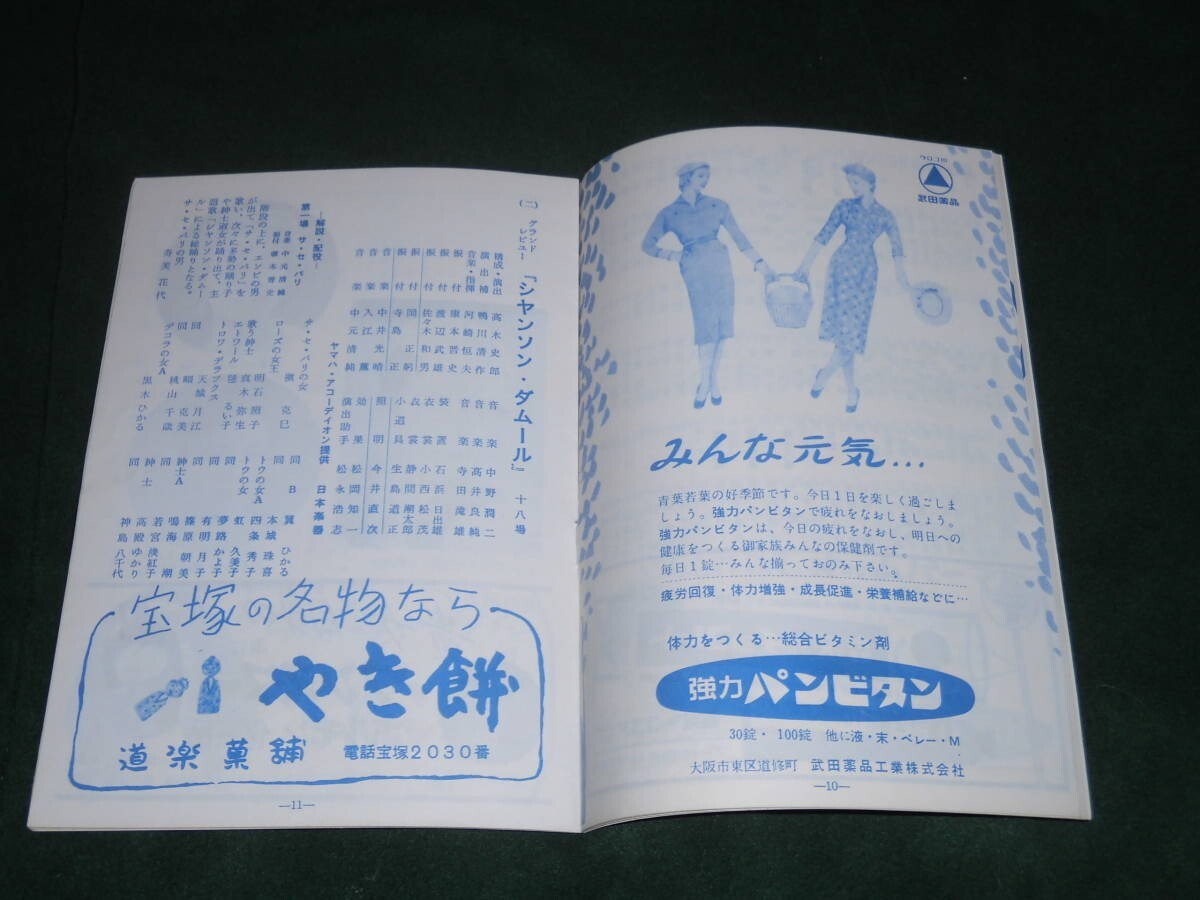 武田薬品
みんな元気…
青葉若葉の好季節です。今日1日を楽しく過ごしま
しょう。強力パンビタンで疲れをなおしましょう。
強力パンビタンは、今日の疲れをなおし、明日への
健康をつくる御家族みんなの保健剤です。
毎日1錠…みんな揃っておのみ下さい。
疲労回復・体力増強・成長促進・栄養補給などに…
体力をつくる…総合ビタミン剤
強力パンビタン
30錠・100錠 他に液・末・ペレー・M
大阪市東区道修町 武田薬品工業株式会社
—10—
(二) グランド
レビュー 『シヤンソン・ダムール』 十八場
構成・演出 高木史郎
演出補 鴨川清作
音楽・指揮 河崎恒夫
振付 康本晋史
振付 渡辺武雄
振付 佐々木和男
振付 間正躬
振付 寺島正
音楽 中井光晴
音楽 入江薫
音楽 中元清純
音楽 中野潤二
音楽 高井良純
音楽 寺田滝雄
装置 石浜日出雄
衣裳 小西松茂
衣裳 静間潮太郎
小道具 生島道正
照明 今井直次
効果 松岡知一
演出助手 松永浩志
ヤマハ・アコーデイオン提供 日本楽器
—解説・配役—
第一場 サ・セ・パリ
音楽 中元清純
振付 康本晋史
階段の上に、エンビの男
が出て「サ・セ・パリ」を
歌い、次々に多勢の踊り子
や紳士淑女が踊り出て、主
題歌「シヤンソン・ダムー
ル」による総踊りとなる。
サ・セ・パリの男
寿美花代
サ・セ・パリの女
槇克巳
ローズの女王
明石照子
歌う紳士 真木弥生
エトワール 毬るい子
トロワ・グラブクス
天城月江
同 晴克美
同 桃山千歳
デコラの女A
黒木ひかる
同 B 翼ひかる
同 本城珠喜
トウの女A 四条秀子
トウの女 虹久美子
同 夢路かよ子
同 有明月子
紳士A 篠原朝美
同 鳴海潮
紳士 若宮淡紅子
同 高殿ゆかり
神島八千代
宝塚の名物なら
やき餅
道楽菓舗 電話宝塚2030番
—11—